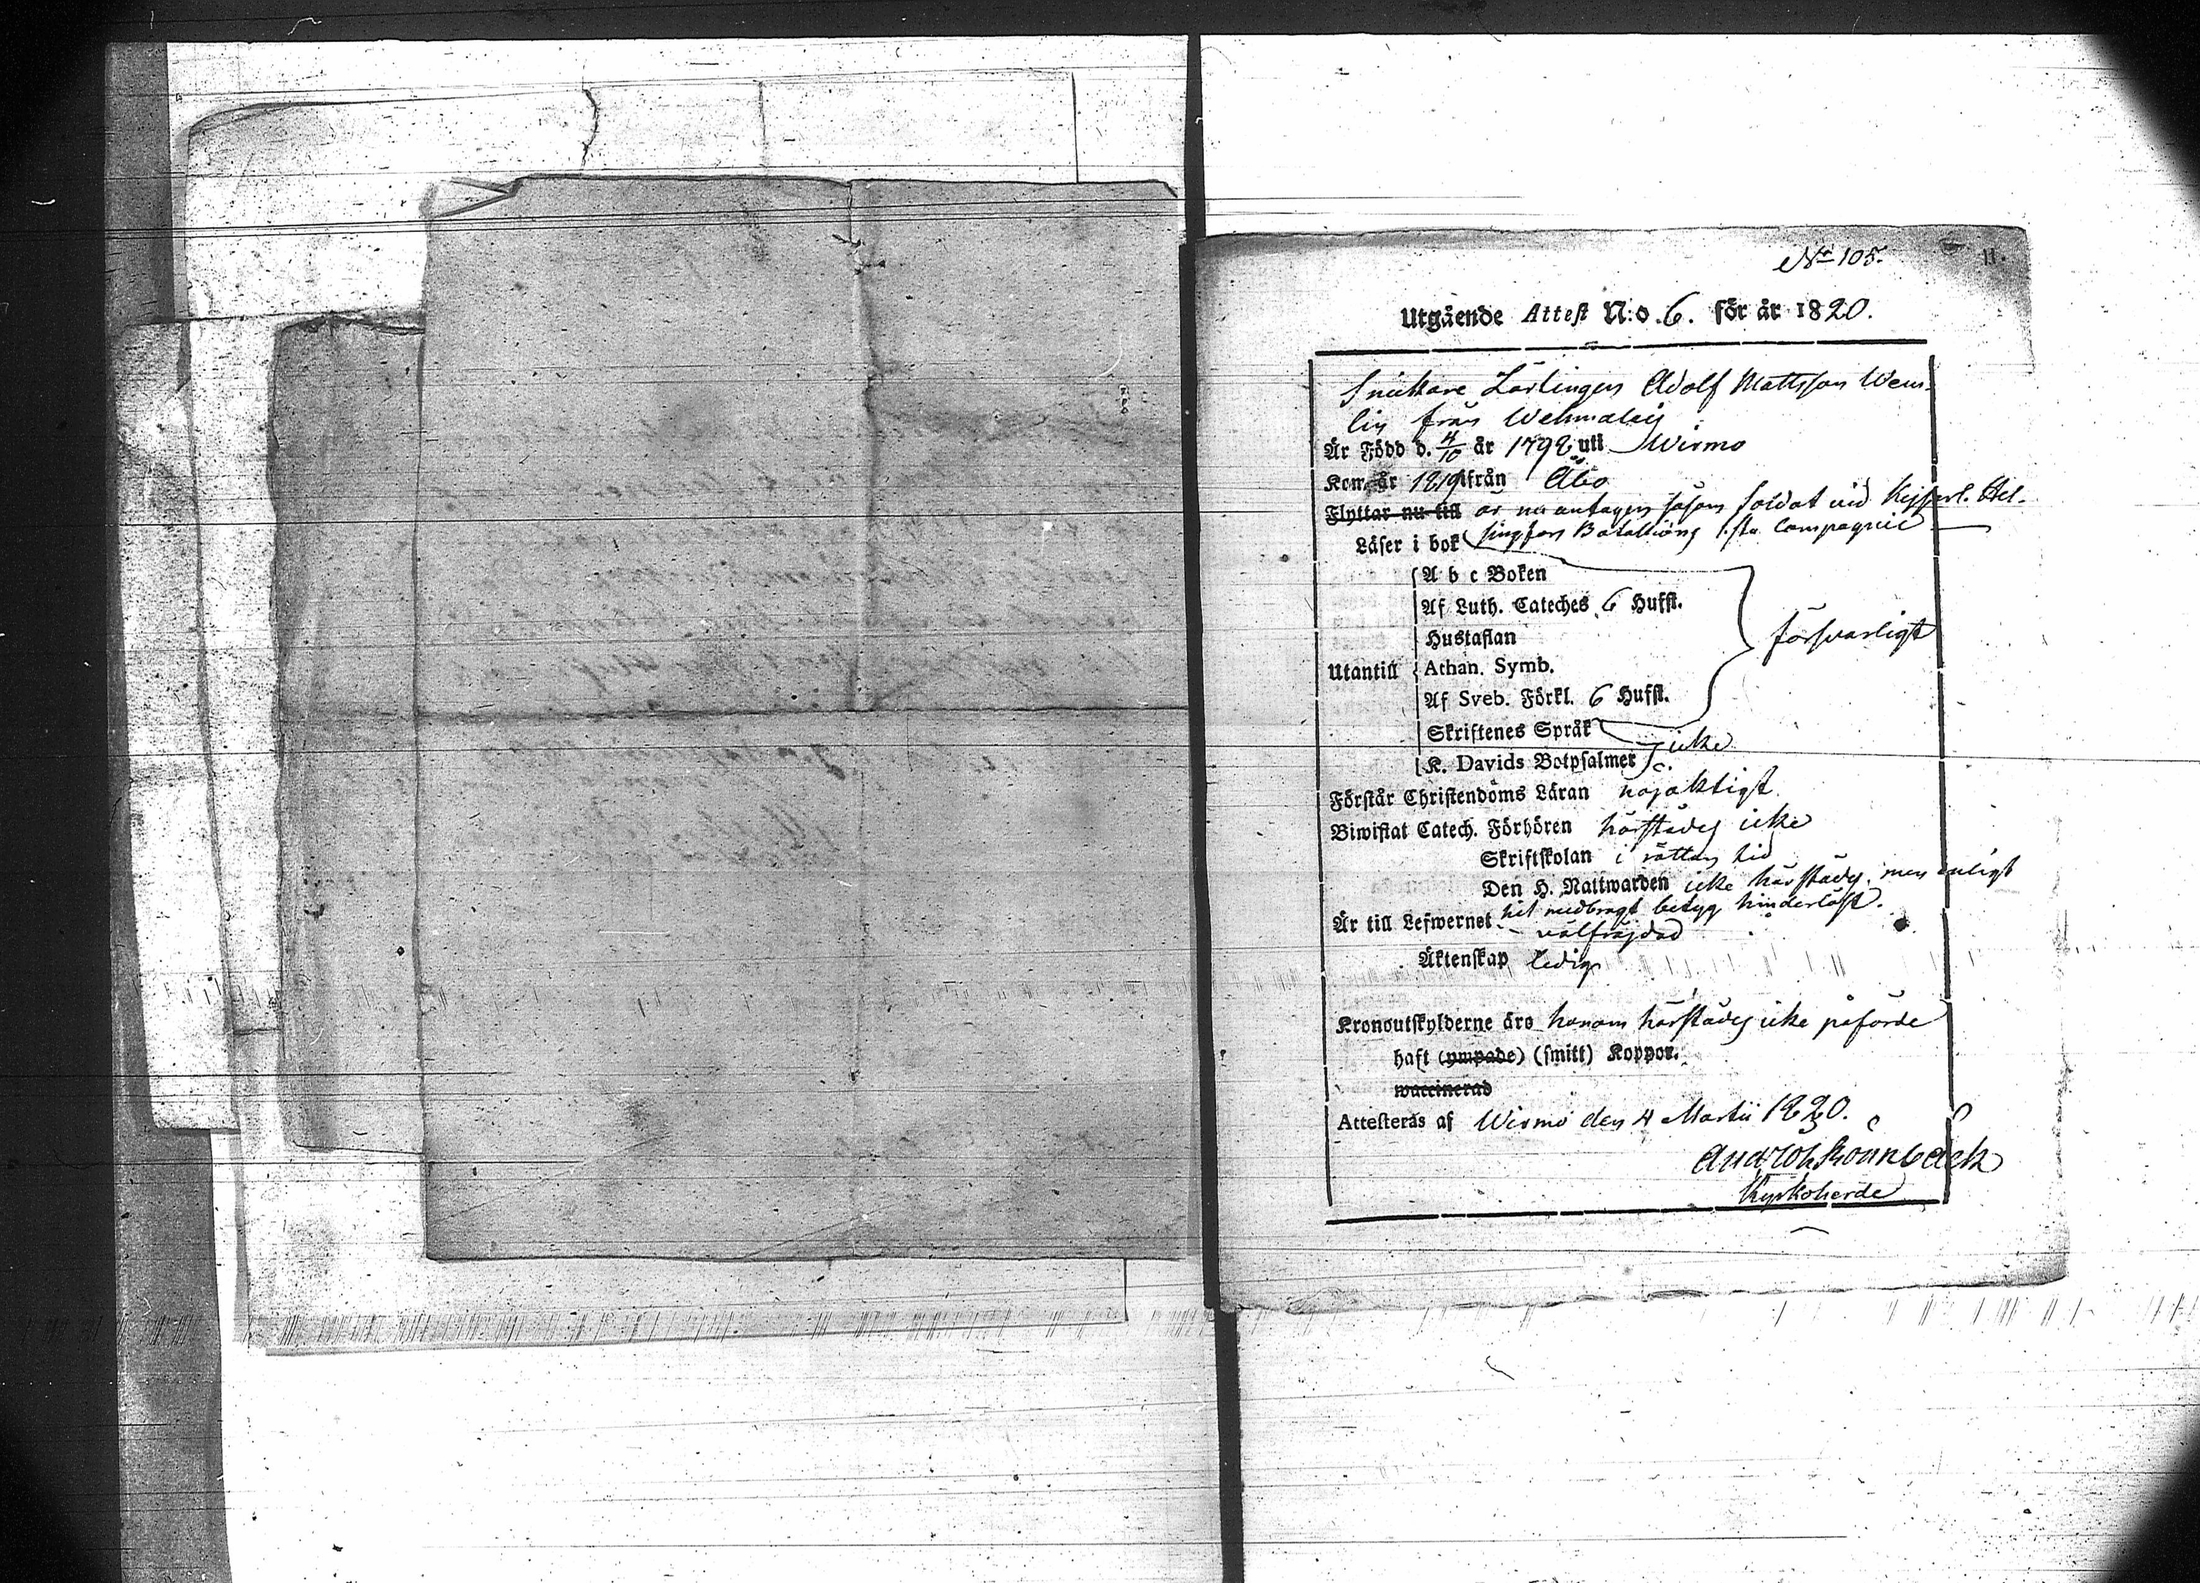 No 105.
11.
Utgående Attest N:o 6. för år 1820.
Snickare Lärlingen Adolf Mattsson Wem
lin från Wehmalais
Är Född d. 4/10 år 1798 uti Wirmo
Kom år 1819 ifrån Åbo
Flyttar nu till är nu antagen såsom Soldat vid Kejserl. Hel-
singfors Bataillons 1:sta Compagnie
Läser i bok
A b c Boken
Af Luth. Cateches 6 Huffst.
Hustaflan
försvarligt
Utantill Athan. Symb.
Af Sveb. Förkl. 6 Huffst.
Skriftenes Språk
icke
K. Davids Botpsalmer
Förstår Christendoms Läran nöjaktigt
Biwistat Catech. Förhören härstädes icke
Skriftskolan i rättan tid
Den H. Nattwarden icke härstädes, men enligt
hit medbragt betyg hinderlöst.
Är till Lefwernet välfräjdad
Äktenskap ledig
Kronoutskylderne äro honom härstädes icke påförde
haft (ympade) (smitt) Koppor.
waccinerad
Attesteras af Wirmo den 4 Martii 1820.
Rönnbäck
Kyrkoherde